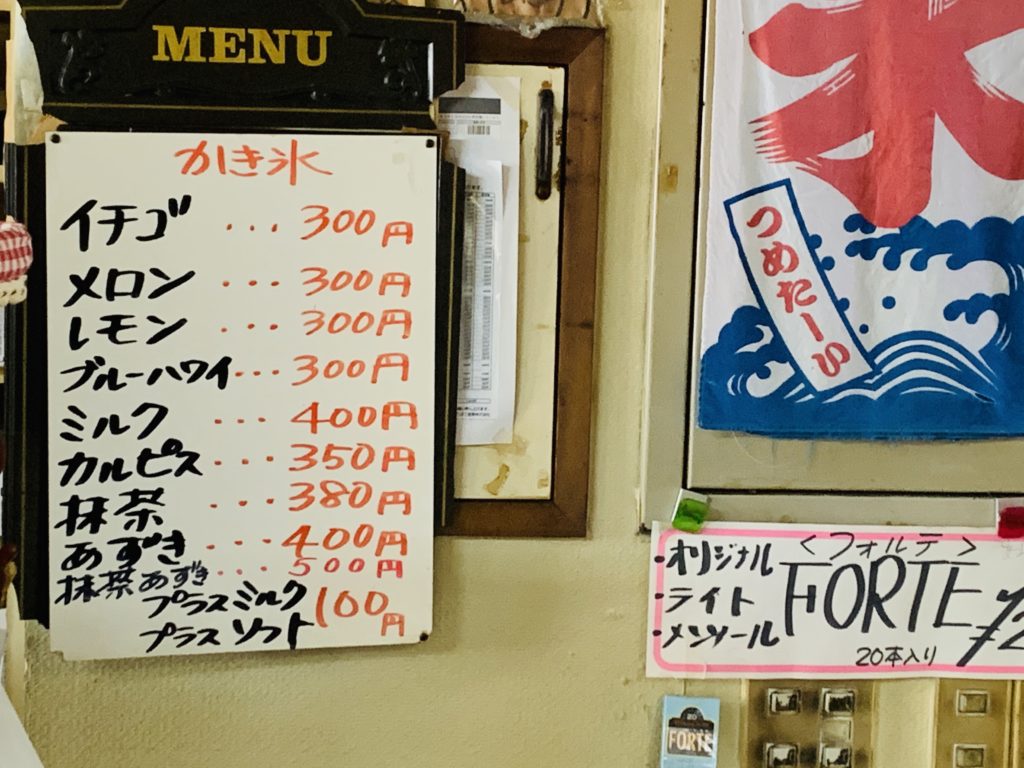 MENU
かき氷
イチゴ ... 300円
メロン ... 300円
レモン ... 300円
ブルーハワイ ... 300円
ミルク ... 400円
カルピス ... 350円
抹茶 ... 380円
あずき ... 400円
抹茶あずき ... 500円
プラスミルク 100円
プラスソフト
氷
つめた〜い
・オリジナル
・ライト
・メンソール
<フォルテ>
FORTE
20本入り
FORTE